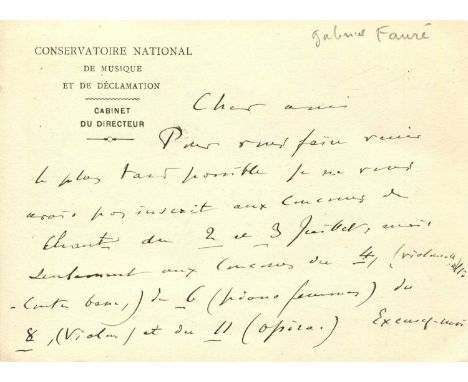 Gabriel Fauré
CONSERVATOIRE NATIONAL
DE MUSIQUE
ET DE DÉCLAMATION
CABINET
DU DIRECTEUR
Cher ami
Pour vous faire venir
le plus tard possible je ne vous
avais pas inscrit aux Concours de
Chant du 2 et 3 Juillet, mais
seulement aux Concours du 4, (violoncelle, alto
Contre basse,) du 6 (pianos femmes) du
8, (Violon) et du 11 (Opéra.) Excusez-moi